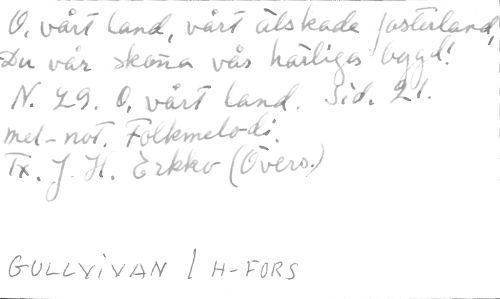 O, vårt land, vårt älskade fosterland,
Du vår sköna vås härliga bygd!
N. 29. O, vårt land. Sid. 21.
mel-not. Folkmelodi.
Tx. J. H. Erkko (Övers.)
GULLVIVAN / H-FORS